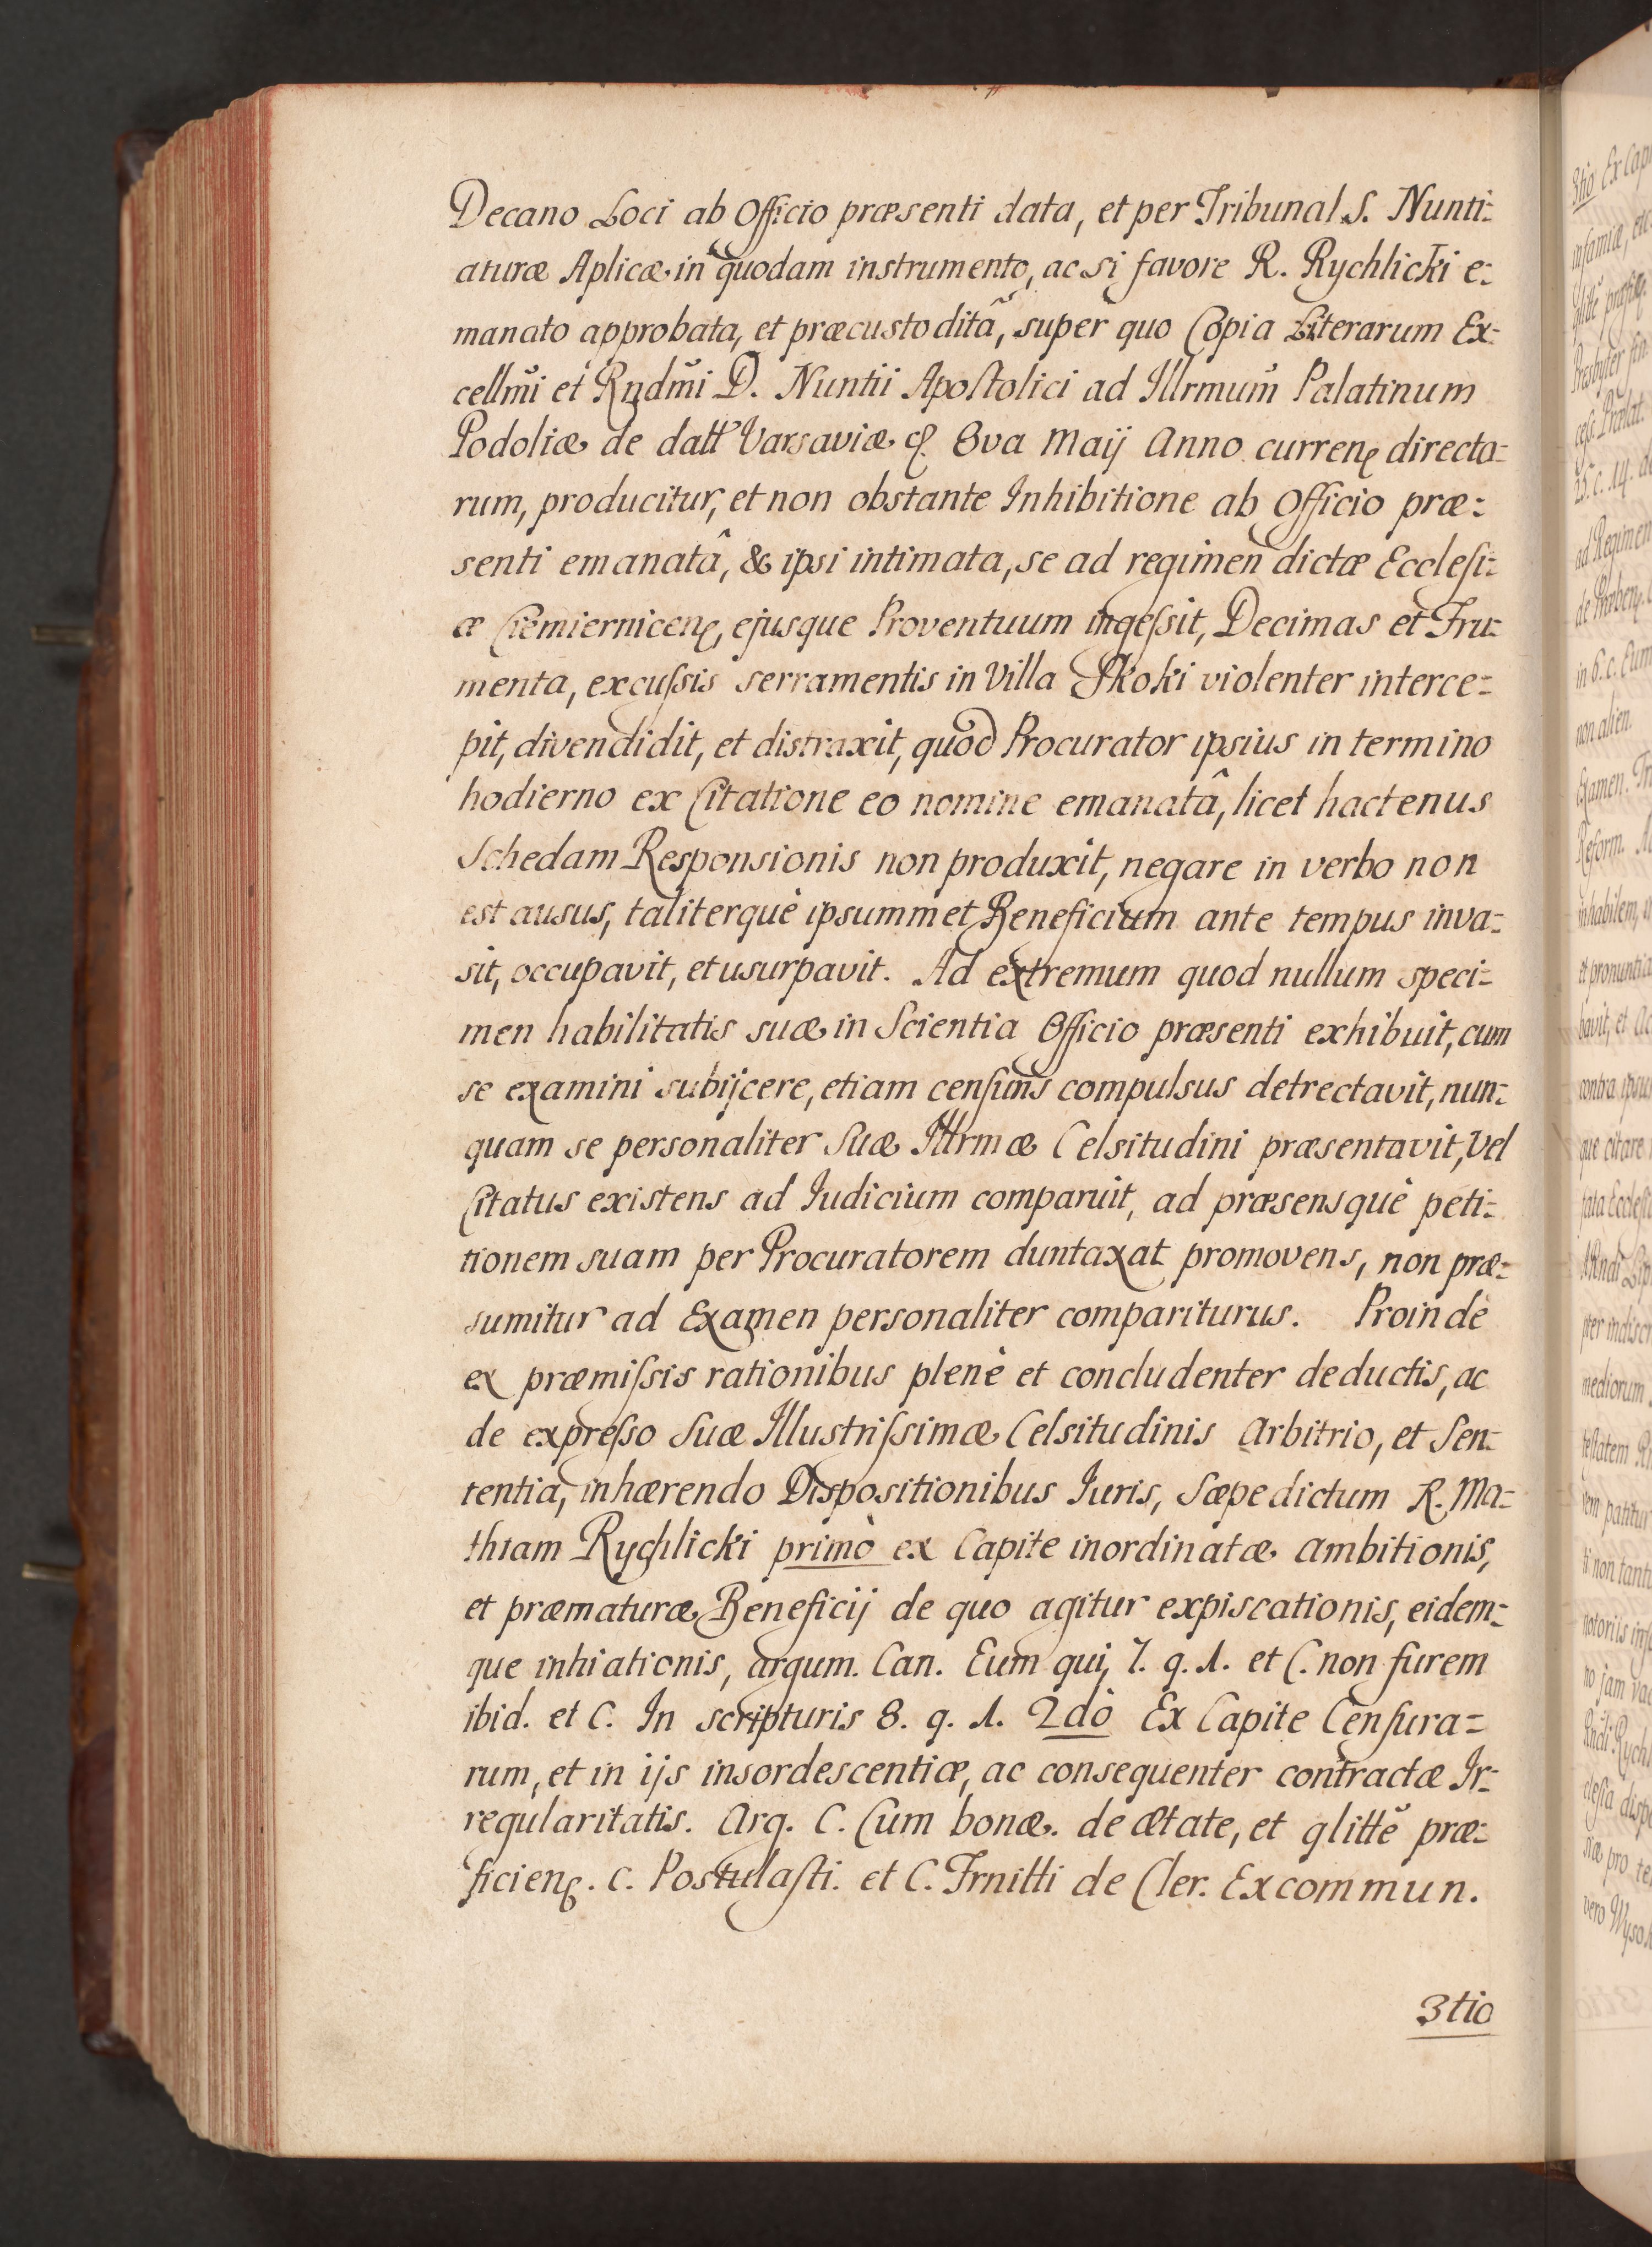 Decano Loci ab Officio præsenti data, et per Tribunal S. Nunti:
aturæ Aplicæ in quodam instrumento, ac si favore R. Rychlicki e:
manato approbata, et præcustoditâ, super quo Copia Literarum Ex:
cellm̃i et Rndm̃i D. Nuntii Apoſtolici ad Illrmum̃ Palatinum
Podoliæ de datt Varsaviæ 8va Maij Anno curren directa:
rum, producitur, et non obstante Inhibitione ab Officio præ:
senti emanatâ, & ipsi intimata, se ad regimen dictæ Eccleſi:
æ Ciemiernicen, ejusque Proventuum ingeſsit, Decimas et Fru:
menta, excuſsis serramentis in Villa Skoki violenter interce:
pit, divendidit, et distraxit, quod Procurator ipsius in termino
hodierno ex Citatione eo nomine emanatâ, licet hactenus
Schedam Responsionis non produxit, negare in verbo non
est ausus, taliterquè ipsummet Beneficium ante tempus inva:
sit, occupavit, et usurpavit. Ad extremum quod nullum speci:
men habilitatis suæ in Scientia Officio præsenti exhibuit, cum
se examini subijcere, etiam cenſuris compulsus detrectavit, nun:
quam se personaliter Suæ Illrmæ Celsitudini præsentavit, vel
Citatus existens ad Iudicium comparuit, ad præsensquè peti:
tionem suam per Procuratorem duntaxat promovens, non præ:
sumitur ad Examen personaliter compariturus. Proindè
ex præmiſsis rationibus plenè et concludenter deductis, ac
de expreſso Suæ Illustriſsimæ Celsitudinis Arbitrio, et Sen:
tentia, inhærendo Dispositionibus Iuris, Sæpedictum R. Ma:
thiam Rychlicki primò ex Capite inordinatæ ambitionis,
et præmaturæ Beneficij de quo agitur expiscationis, eidem:
que inhiationis, argum. Can. Eum qui, 7. q. 1. et C. non furem
ibid. et C. In scripturis 8. q. 1. 2dò Ex Capite Cenſura:
rum, et in ijs insordescentiæ, ac consequenter contractæ Ir:
regularitatis. Arg. C. Cum bonæ. de ætate, et qlittẽ præ:
ficien. C. Postulaſti. et C. Frnitti de Cler. Excommun.
3tio